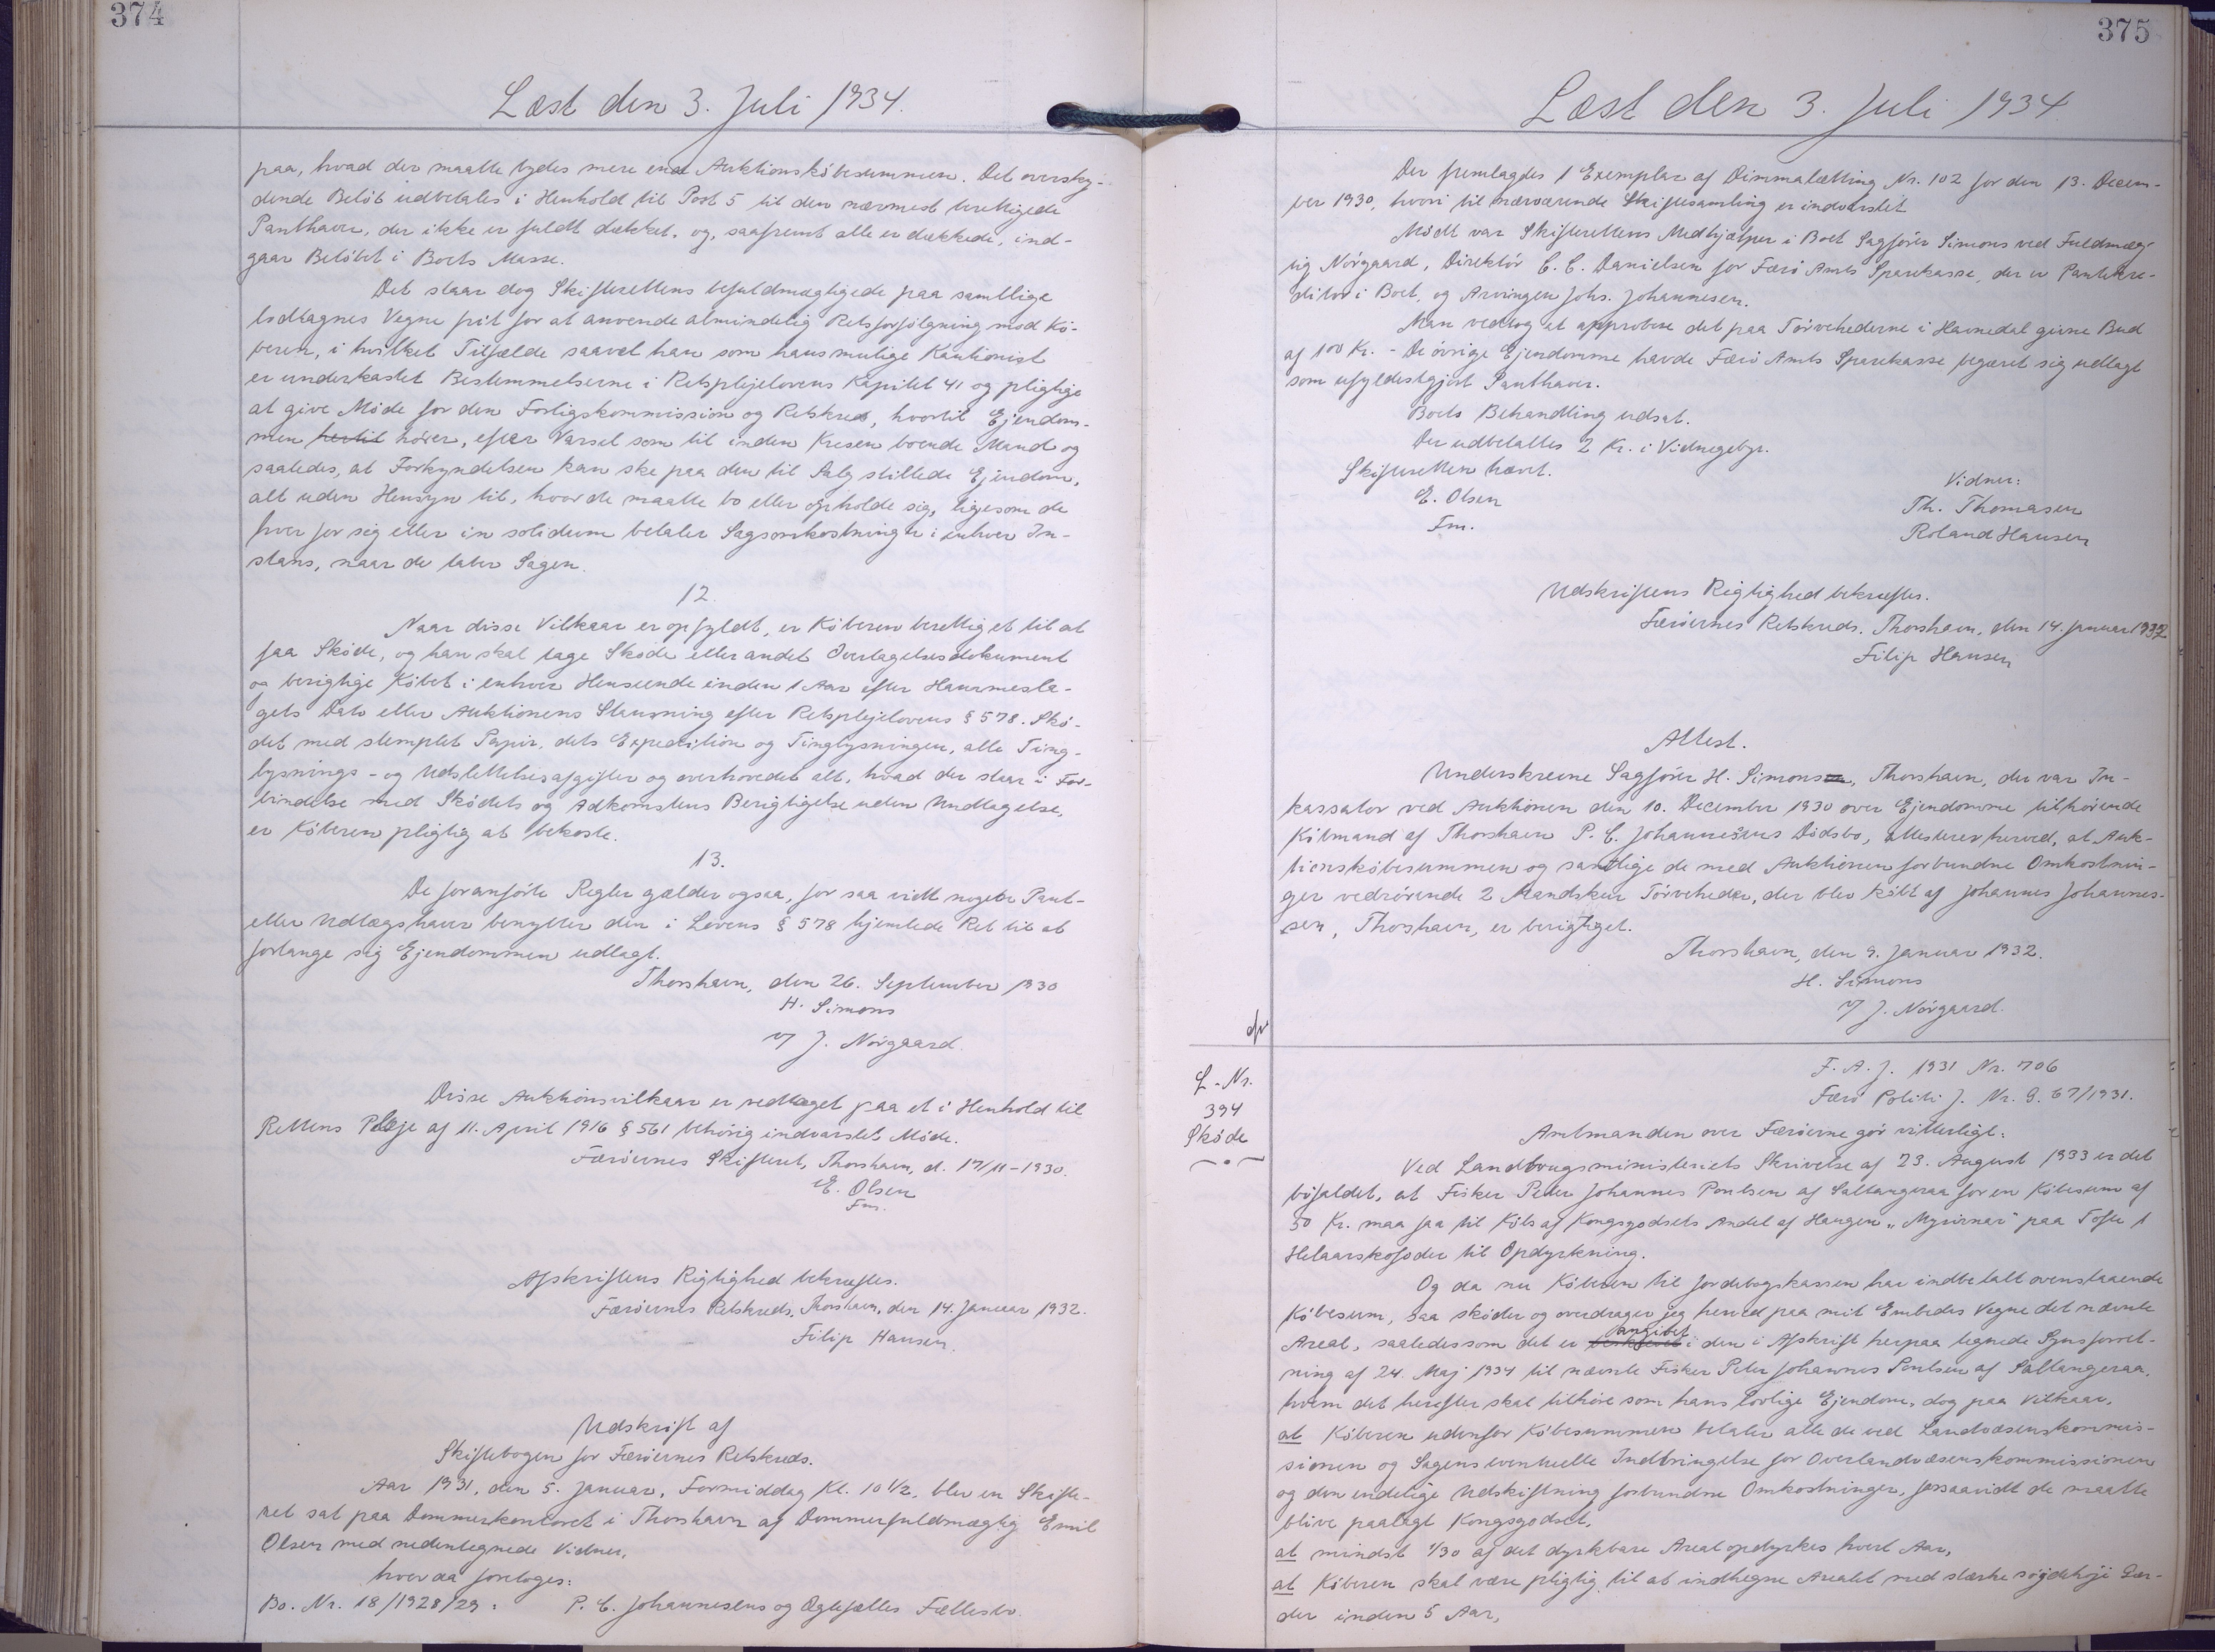 374
Læst den 3. Juli 1934.
paa, hvad der maatte bydes mere end Auktionskøbesummen. Det oversky-
dende Beløb udbetales i Henhold til Post 5 til den nærmest berettigede
Panthaver, der ikke er fuldt dækket, og, saafremt alle er dækkede, ind-
gaar Beløbet i Boets Masse.
Det staar dog Skifterettens befuldmægtigede paa samtlige
lodtagnes Vegne frit for at anvende almindelig Retsforfølgning mod Kø-
beren, i hvilket Tilfælde saavel han som hans mulige Kautionist
er underkastet Bestemmelserne i Retsplejelovens Kapitel 41 og pligtige
at give Møde for den Forligskommission og Retskreds, hvortil Ejendom-
men hertil hører, efter Varsel som til inden Kredsen boende Mand og
saaledes, at Forkyndelsen kan ske paa den til Salg stillede Ejendom,
alt uden Hensyn til, hvor de maatte bo eller opholde sig, ligesom de
hver for sig eller in solidum betaler Sagsomkostninger i enhver In-
stans, naar de taber Sagen.
12.
Naar disse Vilkaar er opfyldt, er Køberen berettiget til at
faa Skøde, og han skal tage Skøde eller andet Overtagelsesdokument
og berigtige Købet i enhver Henseende inden 1 Aar efter Hammersla-
gets Dato eller Auktionens Slutning efter Retsplejelovens § 578. Skø-
det med stemplet Papir, dets Expedition og Tinglysningen, alle Ting-
lysnings- og Udslettelsesafgifter og overhovedet alt, hvad der staar i For-
bindelse med Skødets og Adkomstens Berigtigelse uden Undtagelse,
er Køberen pligtig at bekoste.
13.
De foranførte Regler gælder ogsaa, for saa vidt nogen Pant-
eller Udlægshaver benytter den i Lovens § 578 hjemlede Ret til at
forlange sig Ejendommen udlagt.
Thorshavn, den 26. September 1930
H. Simons
v/ J. Nørgaard.
Disse Auktionsvilkaar er vedtaget paa et i Henhold til
Rettens Pleje af 11. April 1916 § 561 behørig indvarslet Møde.
Færøernes Skifteret, Thorshavn, d. 17/11-1930.
E. Olsen
Fm.
Afskriftens Rigtighed bekræftes.
Færøernes Retskreds, Thorshavn, den 14. Januar 1932.
Filip Hansen.
Udskrift af
Skiftebogen for Færøernes Retskreds.
Aar 1931, den 5. Januar, Formiddag Kl. 10 1/2, blev en Skifte-
ret sat paa Dommerkontoret i Thorshavn af Dommerfuldmægtig Emil
Olsen med nedentegnede Vidner,
hvorda foretoges:
Bo. Nr. 18/1928/29: P. C. Johannesens og Ægtefælles Fællesbo.
375
Læst den 3. Juli 1934.
Der fremlagdes 1 Exemplar af Dimmalætting Nr. 102 for den 13. Decem-
ber 1930, hvori til nærværende Skiftesamling er indvarslet.
Mødt var Skifterettens Medhjælper i Boet Sagfører Simons ved Fuldmæg-
tig Nørgaard, Direktør C. C. Danielsen for Færø Amts Sparekasse, der er Pantekre-
ditor i Boet, og Arvingen Johs. Johannesen.
Man vedtog at approbere det paa Tørvehederne i Havnedal givne Bud
af 100 Kr. - De øvrige Ejendomme havde Færø Amts Sparekasse begæret sig udlagt
som ufyldestgjort Panthaver.
Boets Behandling udsat.
Der udbetaltes 2 Kr. i Vidnegebyr.
Skifteretten hævet.
E. Olsen
Fm.
Vidner:
Th. Thomasen
Roland Hansen
Udskriftens Rigtighed bekræftes.
Færøernes Retskreds. Thorshavn, den 14. Januar 1932
Filip Hansen
Attest.
Underskrevne Sagfører H. Simonsen, Thorshavn, der var In-
kassator ved Auktionen den 10. December 1930 over Ejendomme tilhørende
Købmand af Thorshavn P. C. Johannesens Dødsbo, attesterer herved, at Auk-
tionskøbesummen og samtlige de med Auktionen forbundne Omkostnin-
ger vedrørende 2 Mandskur Tørveheder, der blev købt af Johannes Johannes-
sen, Thorshavn, er berigtiget.
Thorshavn, den 9. Januar 1932.
H. Simons
v/ J. Nørgaard.
L-Nr.
394
Skøde
F. A. J. 1931 Nr. 706
Færø Politi J. Nr. G. 67/1931.
Amtmanden over Færøerne gør vitterligt:
Ved Landbrugsministeriets Skrivelse af 23. August 1933 er det
bifaldet, at Fisker Peter Johannes Poulsen af Saltangeraa for en Købesum af
50 Kr. maa faa til Købs af Kongsgodsets Andel af Haugen "Myrirnar" paa Tofte 1
Helaarskofoder til Opdyrkning.
Og da nu Køberen til Jordebogskassen har indbetalt ovenstaaende
Købesum, saa skøder og overdrager jeg herved paa mit Embedes Vegne det nævnte
Areal, saaledes som det er beskrevet angivet i den i Afskrift herpaa tegnede Synsforret-
ning af 24. Maj 1934 til nævnte Fisker Peter Johannes Poulsen af Saltangeraa,
hvem det herefter skal tilhøre som hans lovlige Ejendom, dog paa Vilkaar,
at Køberen udenfor Købesummen betaler alle de ved Landvæsenskommis-
sionen og Sagens eventuelle Indbringelse for Overlandvæsenskommissionen
og den endelige Udskiftning forbundne Omkostninger, forsaavidt de maatte
blive paalagt Kongsgodset,
at mindst 1/30 af det dyrkbare Areal opdyrkes hvert Aar,
at Køberen skal være pligtig til at indhegne Arealet med stærke søjdehøje Gær-
der inden 5 Aar,